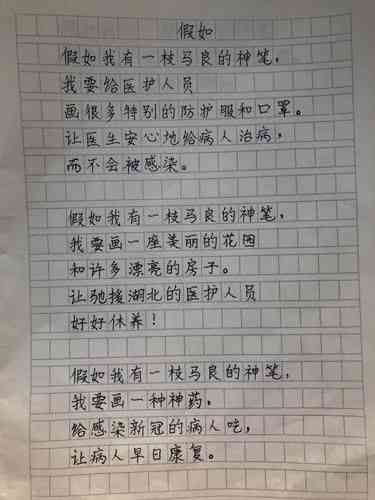 假如
假如我有一枝马良的神笔，
我要给医护人员
画很多特别的防护服和口罩。
让医生安心地给病人治病，
而不会被感染。
假如我有一枝马良的神笔，
我要画一座美丽的花园
和许多漂亮的房子。
让驰援湖北的医护人员
好好休养！
假如我有一枝马良的神笔，
我要画一种神药，
给感染新冠的病人吃，
让病人早日康复。